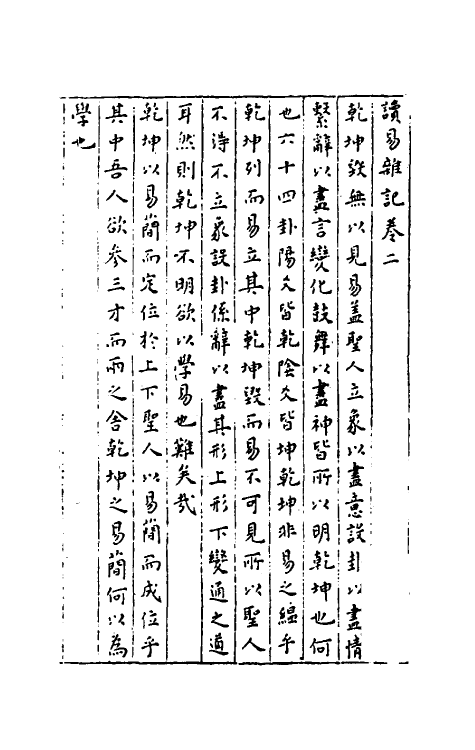 讀易雜記卷二
乾坤毀無以見易蓋聖人立象以盡意設卦以盡情
繫辭以盡言變化鼓舞以盡神皆所以明乾坤也何
也六十四卦陽爻皆乾陰爻皆坤乾坤非易之緼乎
乾坤列而易立其中乾坤毀而易不可見所以聖人
不得不立象設卦係辭以盡其形上形下變通之道
耳然則乾坤不明欲以學易也難矣哉
乾坤以易簡而定位於上下聖人以易簡而成位乎
其中吾人欲參三才而兩之舍乾坤之易簡何以為
學也